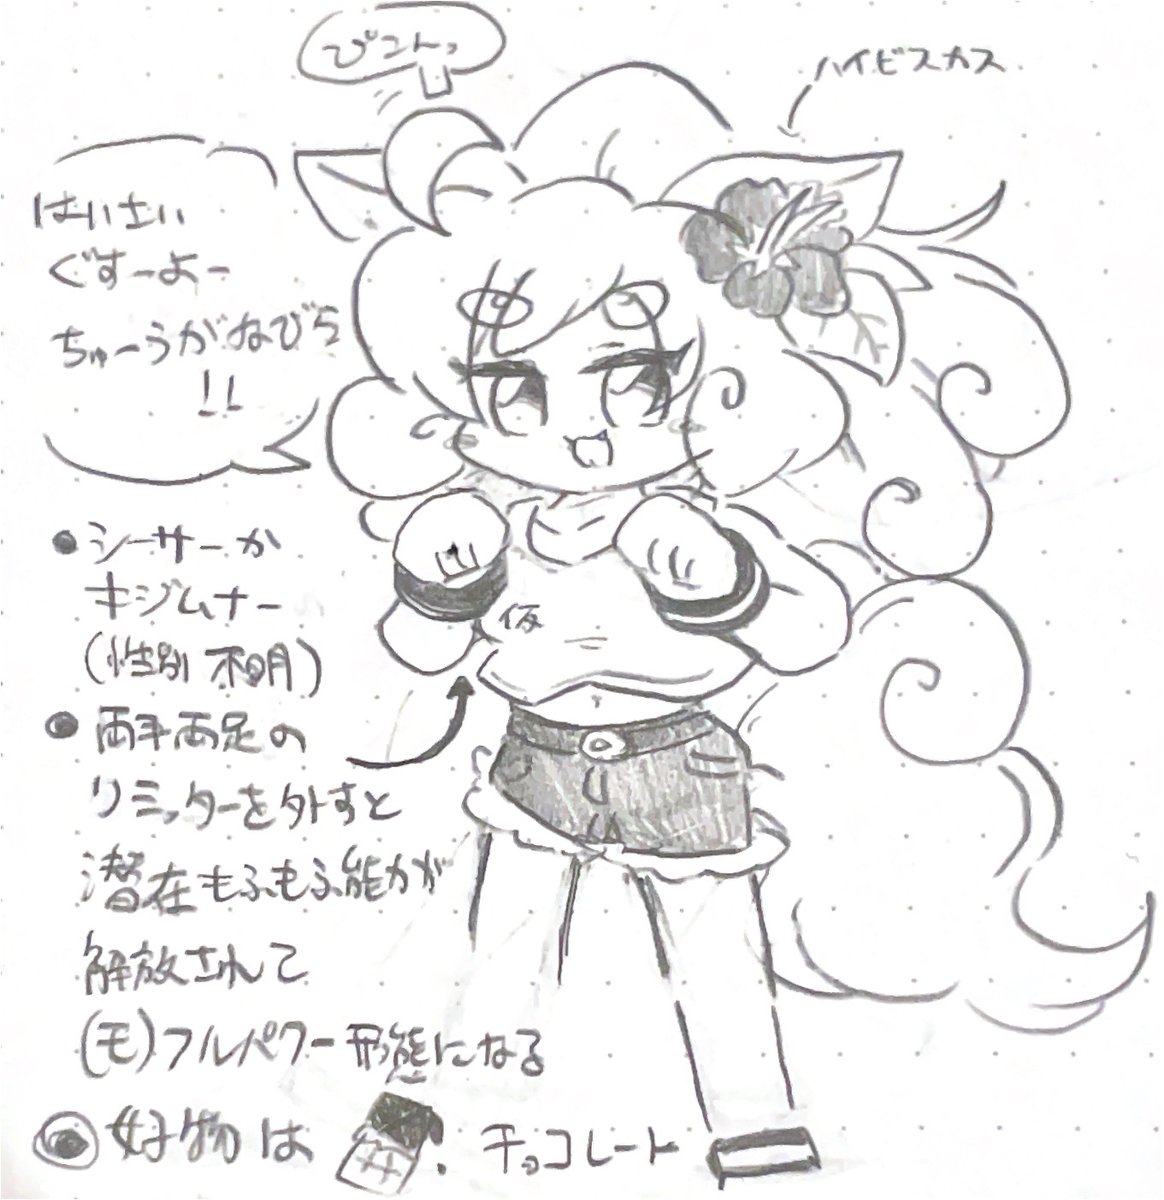 ぴこんっ
ハイビスカス
はいさい
ぐすーよー
ちゅーうがなびら
!!
●シーサーか
キジムナー
(性別不明)
仮
●両手両足の
リミッターを外すと
潜在もふもふ能力が
解放されて
(モ)フルパワー形態になる
◉好物は チョコレート